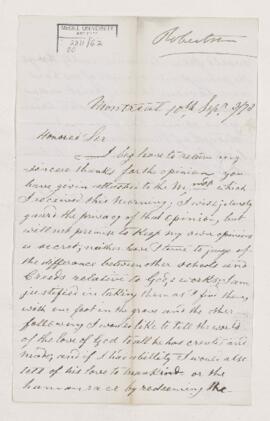 McGILL UNIVERSITY
ARCHIVES
2211/62
Robertson
Montreal 10th Sept. 1878
Honored Sir
I beg leave to return my
sincere thanks for the opinion you
have given reference to the M which
I received this Morning, I will jelously
guard the privacy of that opinion, but
will not promise to keep my own opinions
a secret, neither have I time to judge of
the difference between other schools and
Creeds relative to God's works, I am
justified in taking them as I find them,
with one foot in the grave and the other
following I would like to tell the world
of the love of God to all he has created and
made, and if I had ability I would also
tell of his love to mankind or the
human race by redeeming the